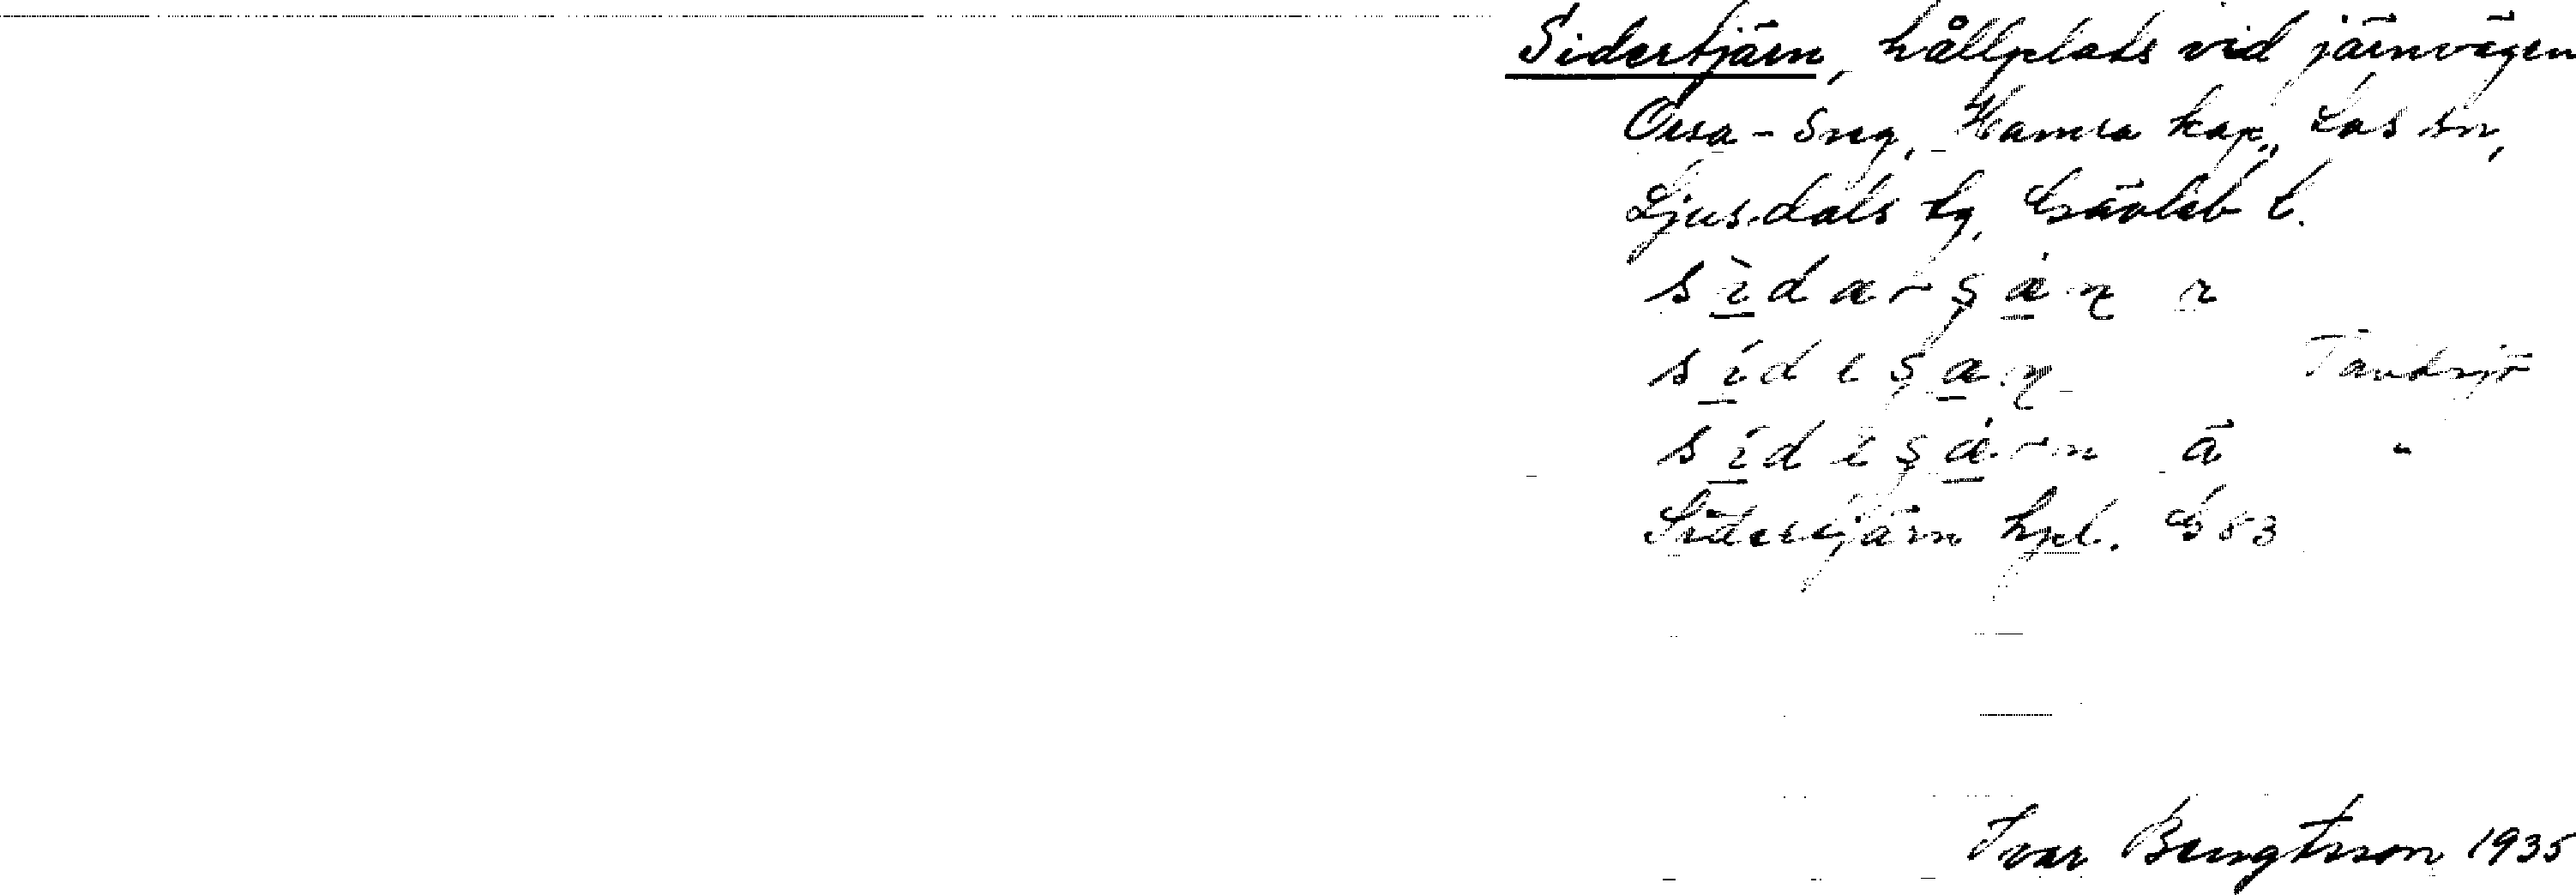 Sidertjärn, hållplats vid järnvägen
Orsa - Sveg, Hamra kap., Los sn,
Ljusdals tg, Gävleb l.
sìdarşàn r
sídeşan Tandsjö
sídeşàrn ä "
Sidertjärn hpl. G 83
Ivar Bengtsson 1935